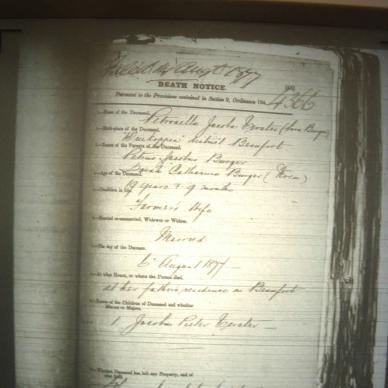 Filed 14 Augt 1877
DEATH NOTICE.
Pursuant to the Provisions contained in Section 9, Ordinance 104,
4366
1.—Name of the Deceased,
Petronella Jacoba (born Burger)
2.—Birth-place of the Deceased,
district Beaufort
3.—Names of the Parents of the Deceased,
Petrus Jacobus Burger
Catharina Burger
4.—Age of the Deceased,
19 years & 9 months
5.—Condition in life,
Farmer's Wife
6.—Married or unmarried, Widower or Widow,
Married
7.—The day of the Decease,
6 August 1877
8.—At what House, or where the Person died,
at her father's residence in Beaufort
9.—Names of the Children of Deceased and whether
Minors or Majors,
1. Jacobus Pieter
10.—Whether Deceased has left any Property, and of
what kind,